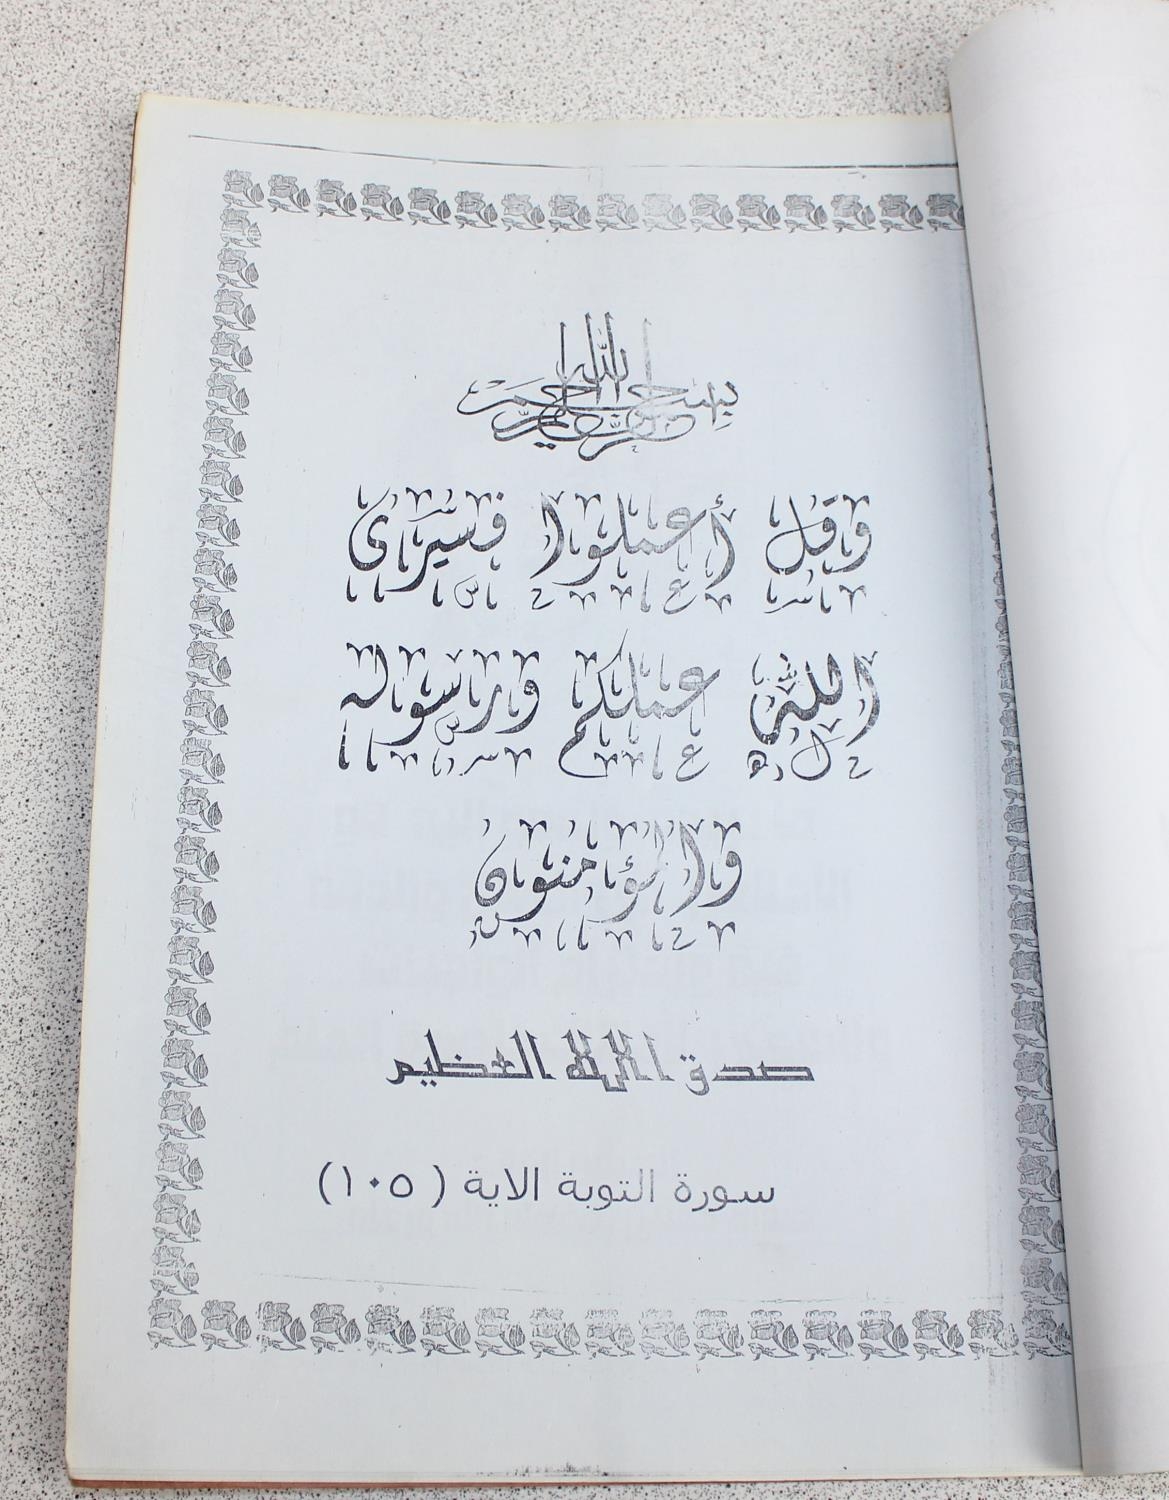 بسم الله الرحمن الرحيم
وقل أعملوا فسيرى
الله عملكم ورسوله
والمؤمنون
صدق الله العظيم
سورة التوبة الاية (١٠٥)